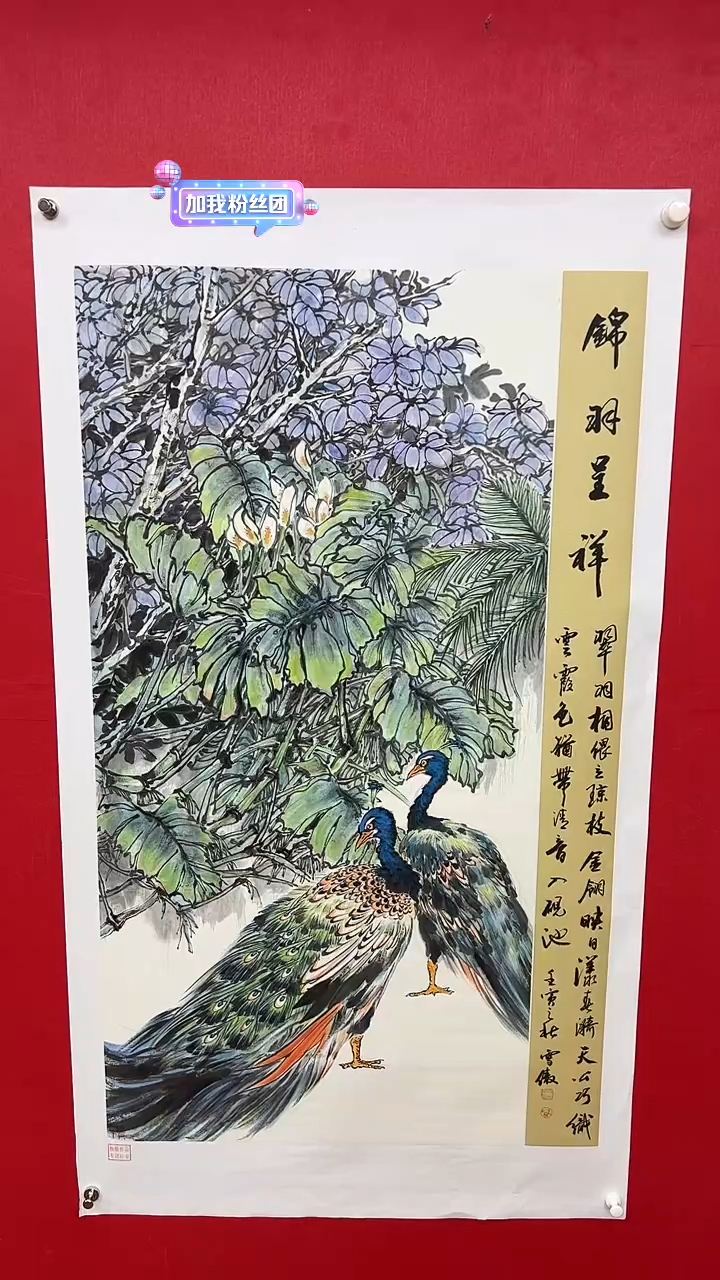 加我粉丝团
錦羽呈祥
翠羽相偎立琼枝 金翎映日漾春漪 天公巧織
雲霞色猶帶清音入硯池 壬寅之秋 雪傲